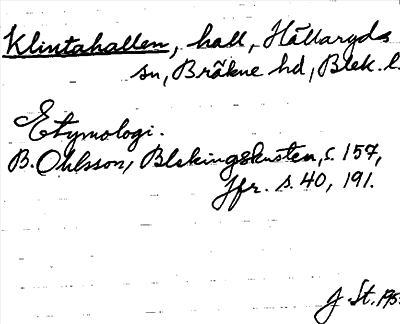 Klintahallen, hall, Hällaryds
sn, Bräkne hd, Blek. l.
Etymologi.
B. Ohlsson, Blekingskusten, s. 157,
Jfr. s. 40, 191.
J. St. 195